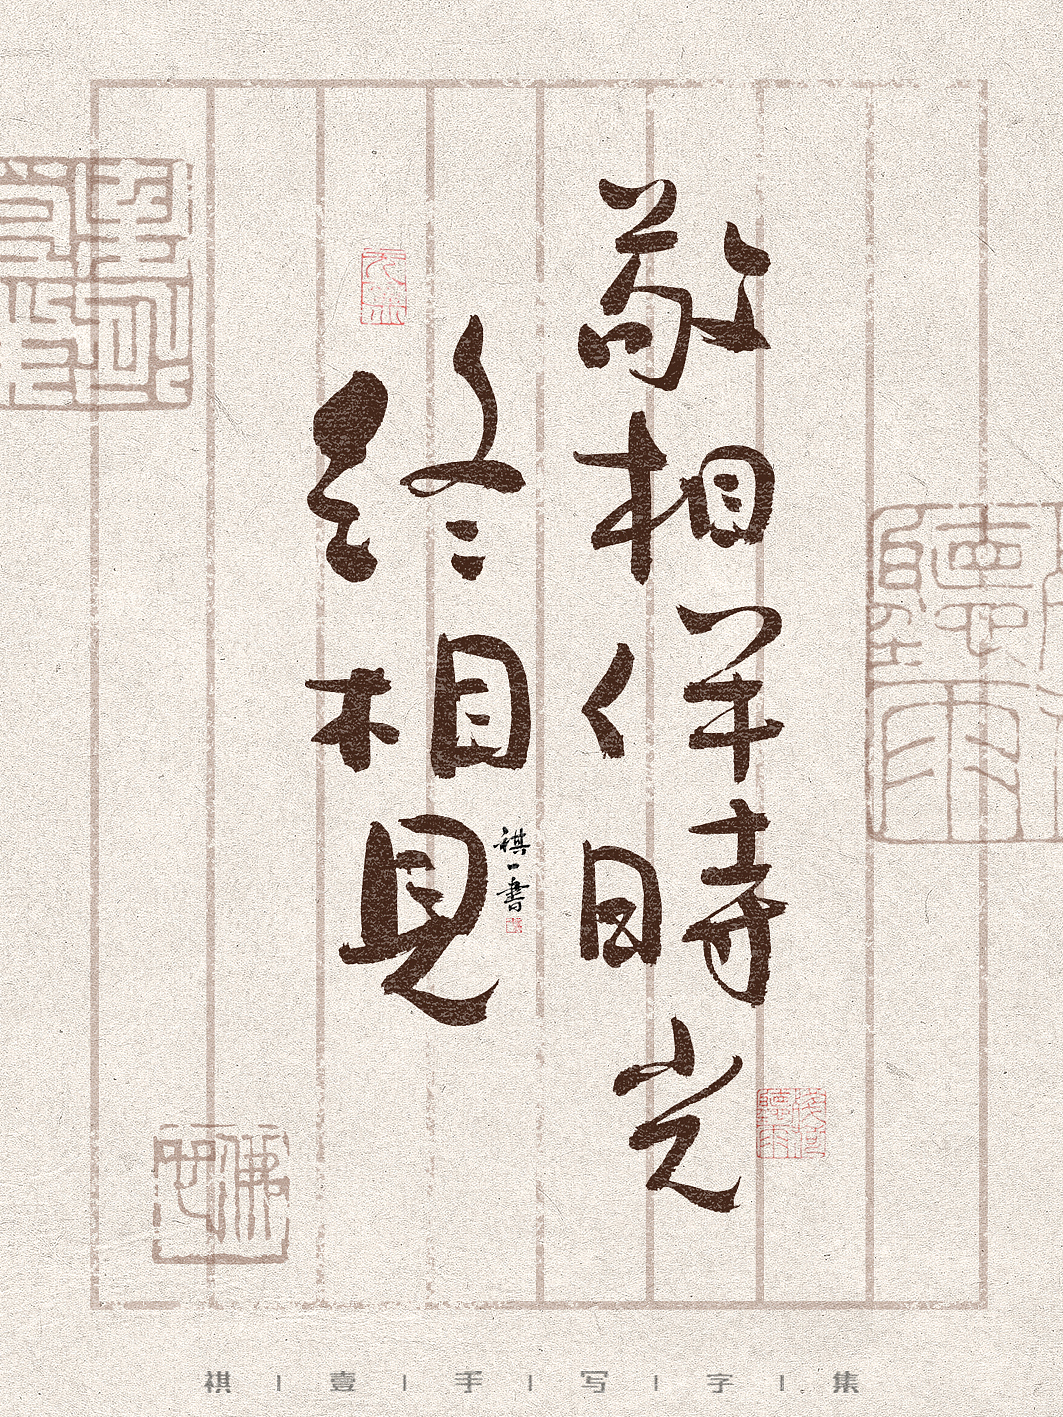 敬相伴時光
终相見
祺一書
祺 | 壹 | 手 | 写 | 字 | 集